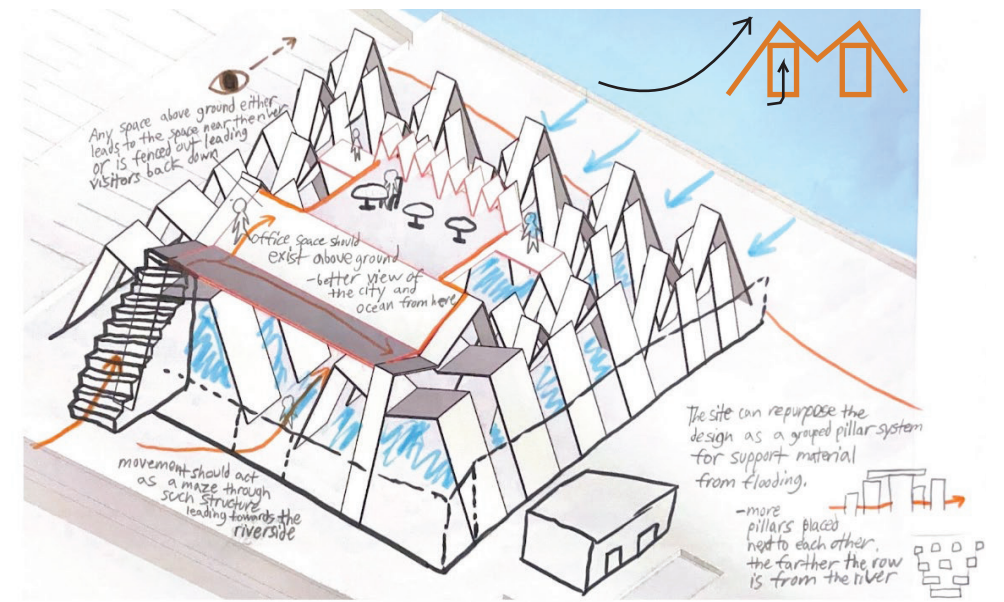 Any space above ground either
leads to the space near the river
or is fenced out leading
visitors back down
office space should
exist above ground
-better view of
the city and
ocean from here
movement should act
as a maze through
such structure
leading towards the
riverside
The site can repurpose the
design as a grouped pillar system
for support material
from flooding.
-more
pillars placed
next to each other,
the farther the row
is from the river